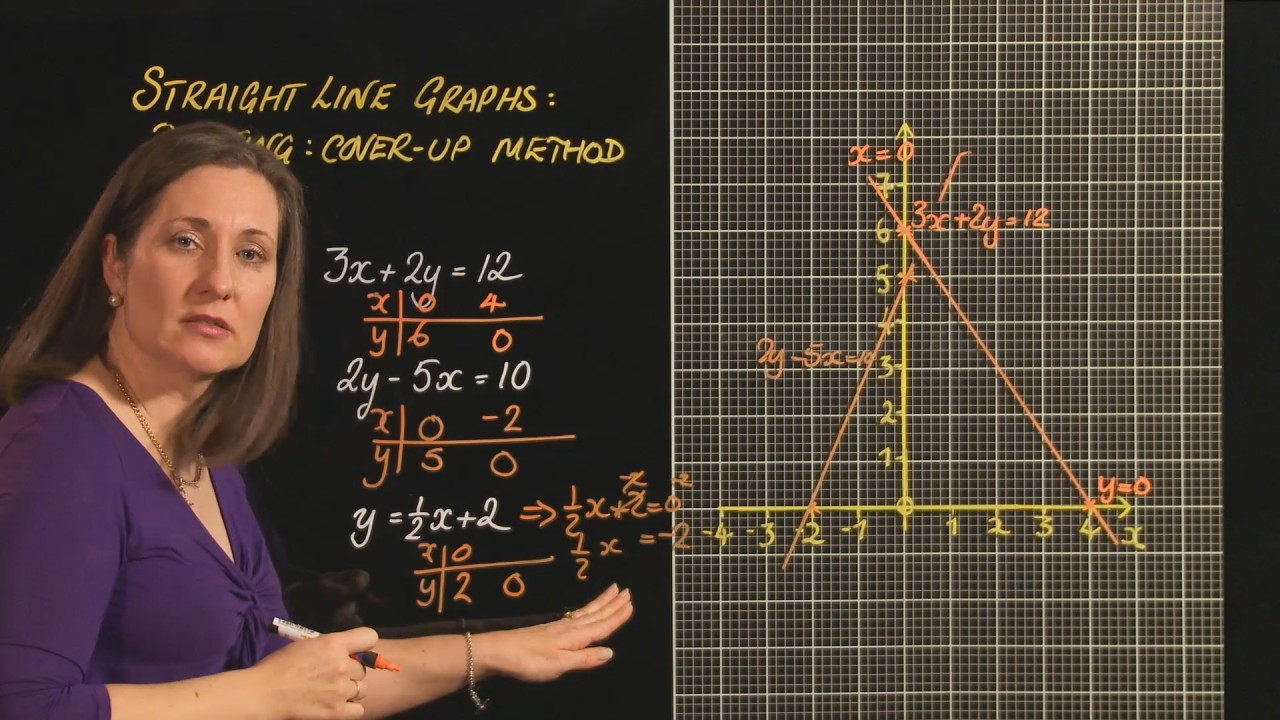 STRAIGHT LINE GRAPHS:
: COVER-UP METHOD
3x+2y=12
x 0 4
y 6 0
2y-5x=10
x 0 -2
y 5 0
y=½x+2 ⇒ ½x+2=0
½x =-2
x 0
y 2 0
x=0
7
3x+2y=12
6
5
4
2y-5x=10
3
2
1
y=0
-4 -3 -2 -1 0 1 2 3 4 x